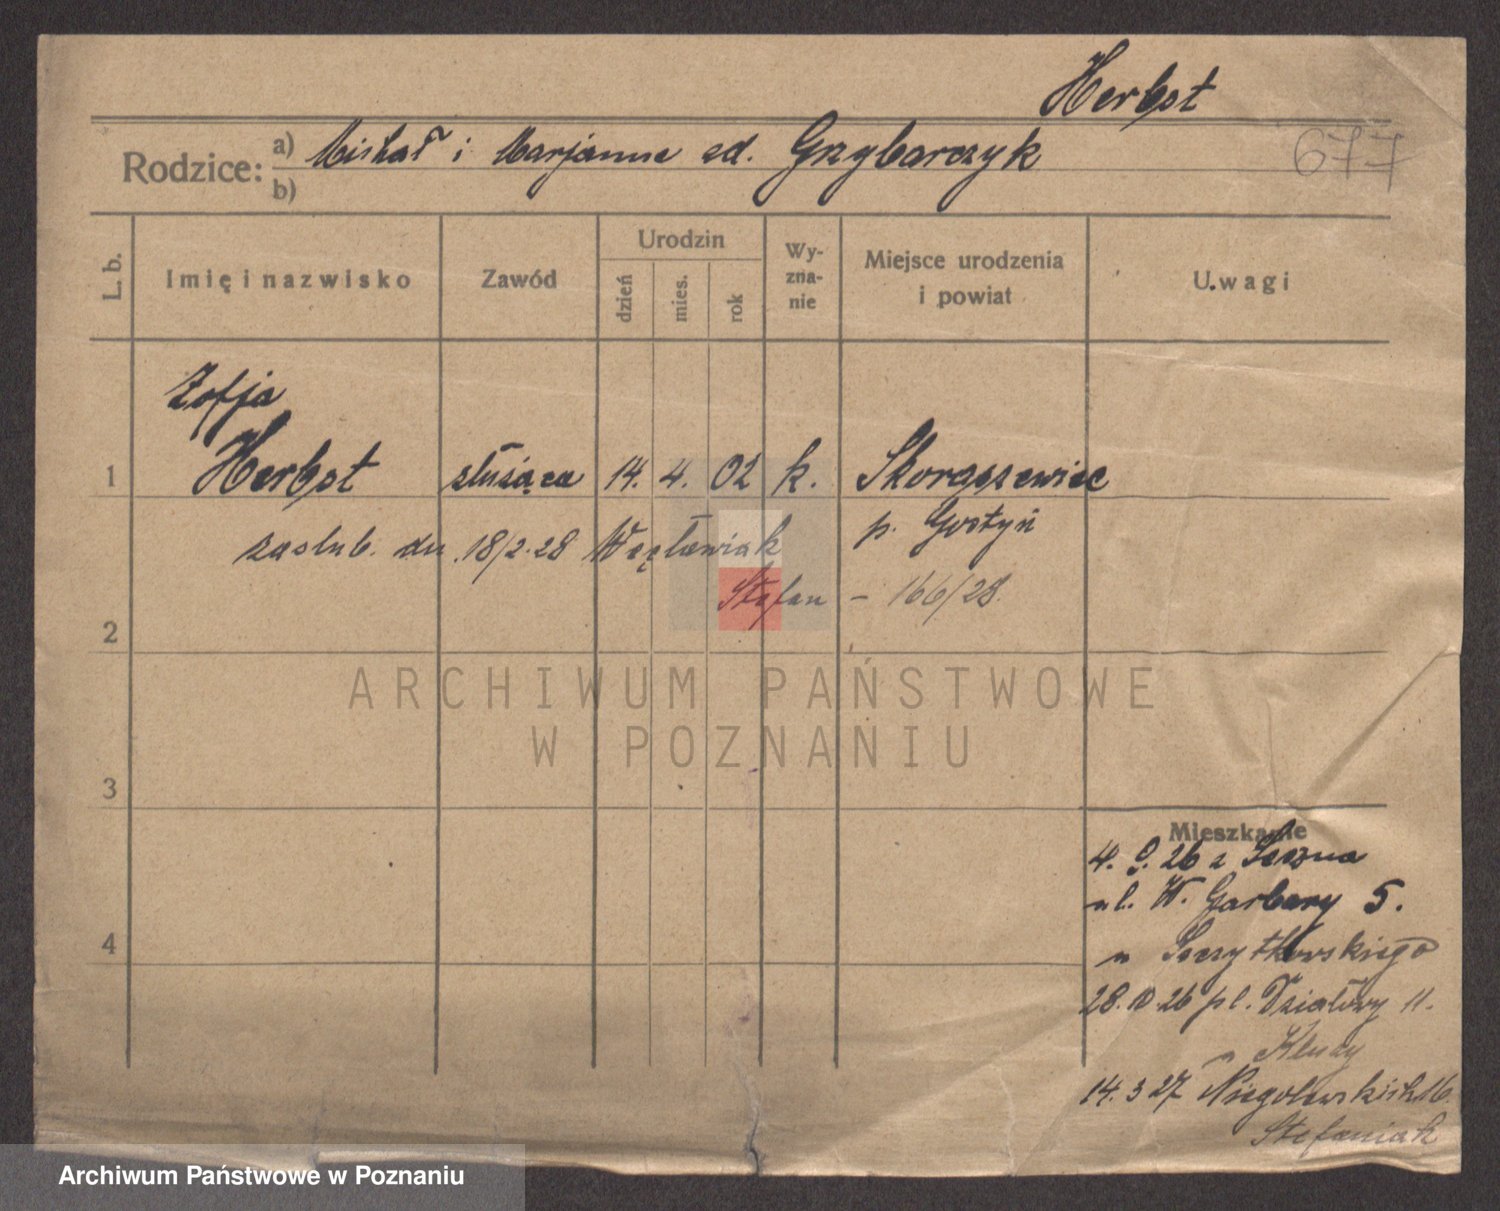 Herbst
677
Rodzice: a) Michał i Marjanna zd. Grzybarczyk
b)
L. b.
Imię i nazwisko
Zawód
Urodzin
dzień
mies.
rok
Wy-
zna-
nie
Miejsce urodzenia
i powiat
Uwagi
Zofja
1 Herbst służąca 14. 4. 02 k. Skoraszewice
p. Gostyń
zaslub. dn. 18/2.28 Węcławiak
Stefan - 166/28.
2
ARCHIWUM PAŃSTWOWE
W POZNANIU
3
Mieszkanie
4. 9. 26 z Leszna
ul. W. Garbary 5.
4
u Szczytkowskiego
28. 10 26 pl. Działowy 11.
u
14. 3 27 Niegolewskich 16.
Stefaniak
Archiwum Państwowe w Poznaniu